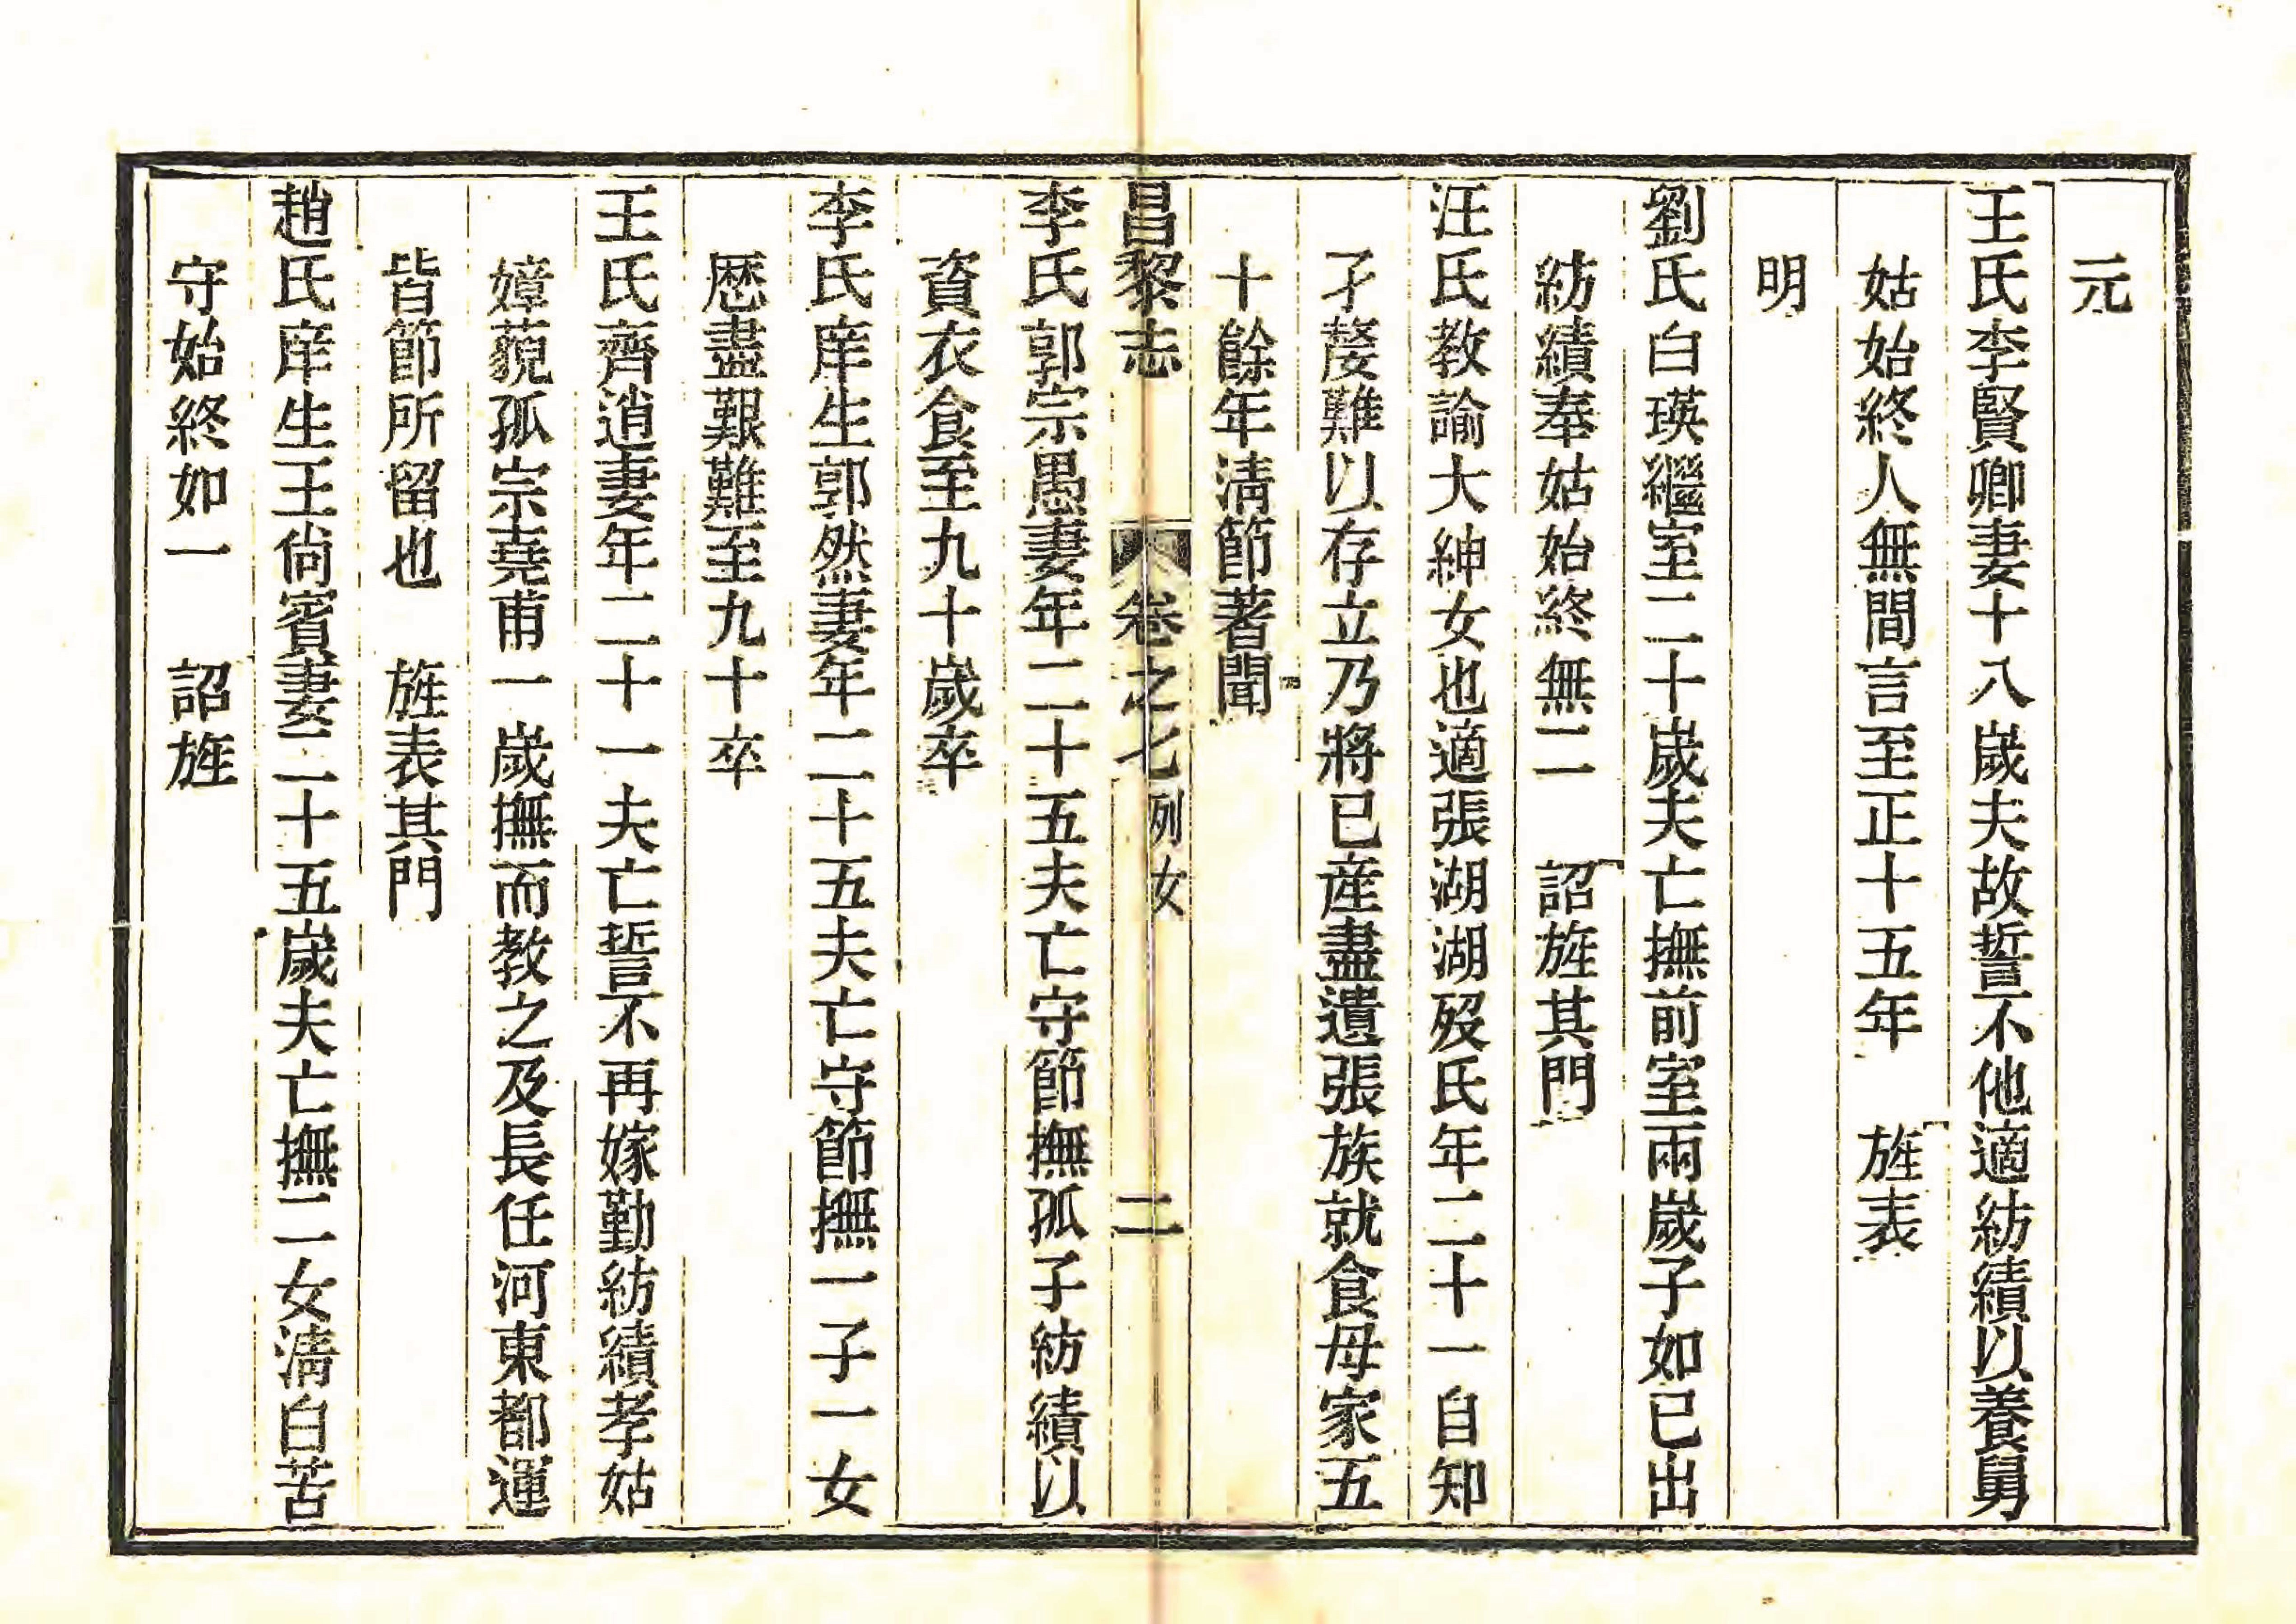 元
王氏李賢卿妻十八歲夫故誓不他適紡績以養舅
姑始終人無間言至正十五年 旌表
明
劉氏白瑛繼室二十歲夫亡撫前室兩歲子如已出
紡績奉姑始終無二 詔旌其門
汪氏教諭大紳女也適張湖湖歿氏年二十一自知
孑嫠難以存立乃將已産盡遺張族就食母家五
十餘年清節著聞
昌黎志 卷之七 列女 二
李氏郭宗愚妻年二十五夫亡守節撫孤子紡績以
資衣食至九十歲卒
李氏庠生郭然妻年二十五夫亡守節撫一子一女
歷盡艱難至九十卒
王氏齊逍妻年二十一夫亡誓不再嫁勤紡績孝姑
嫜藐孤宗堯甫一歲撫而教之及長任河東都運
皆節所留也 旌表其門
趙氏庠生王尙賓妻二十五歲夫亡撫二女淸白苦
守始終如一 詔旌